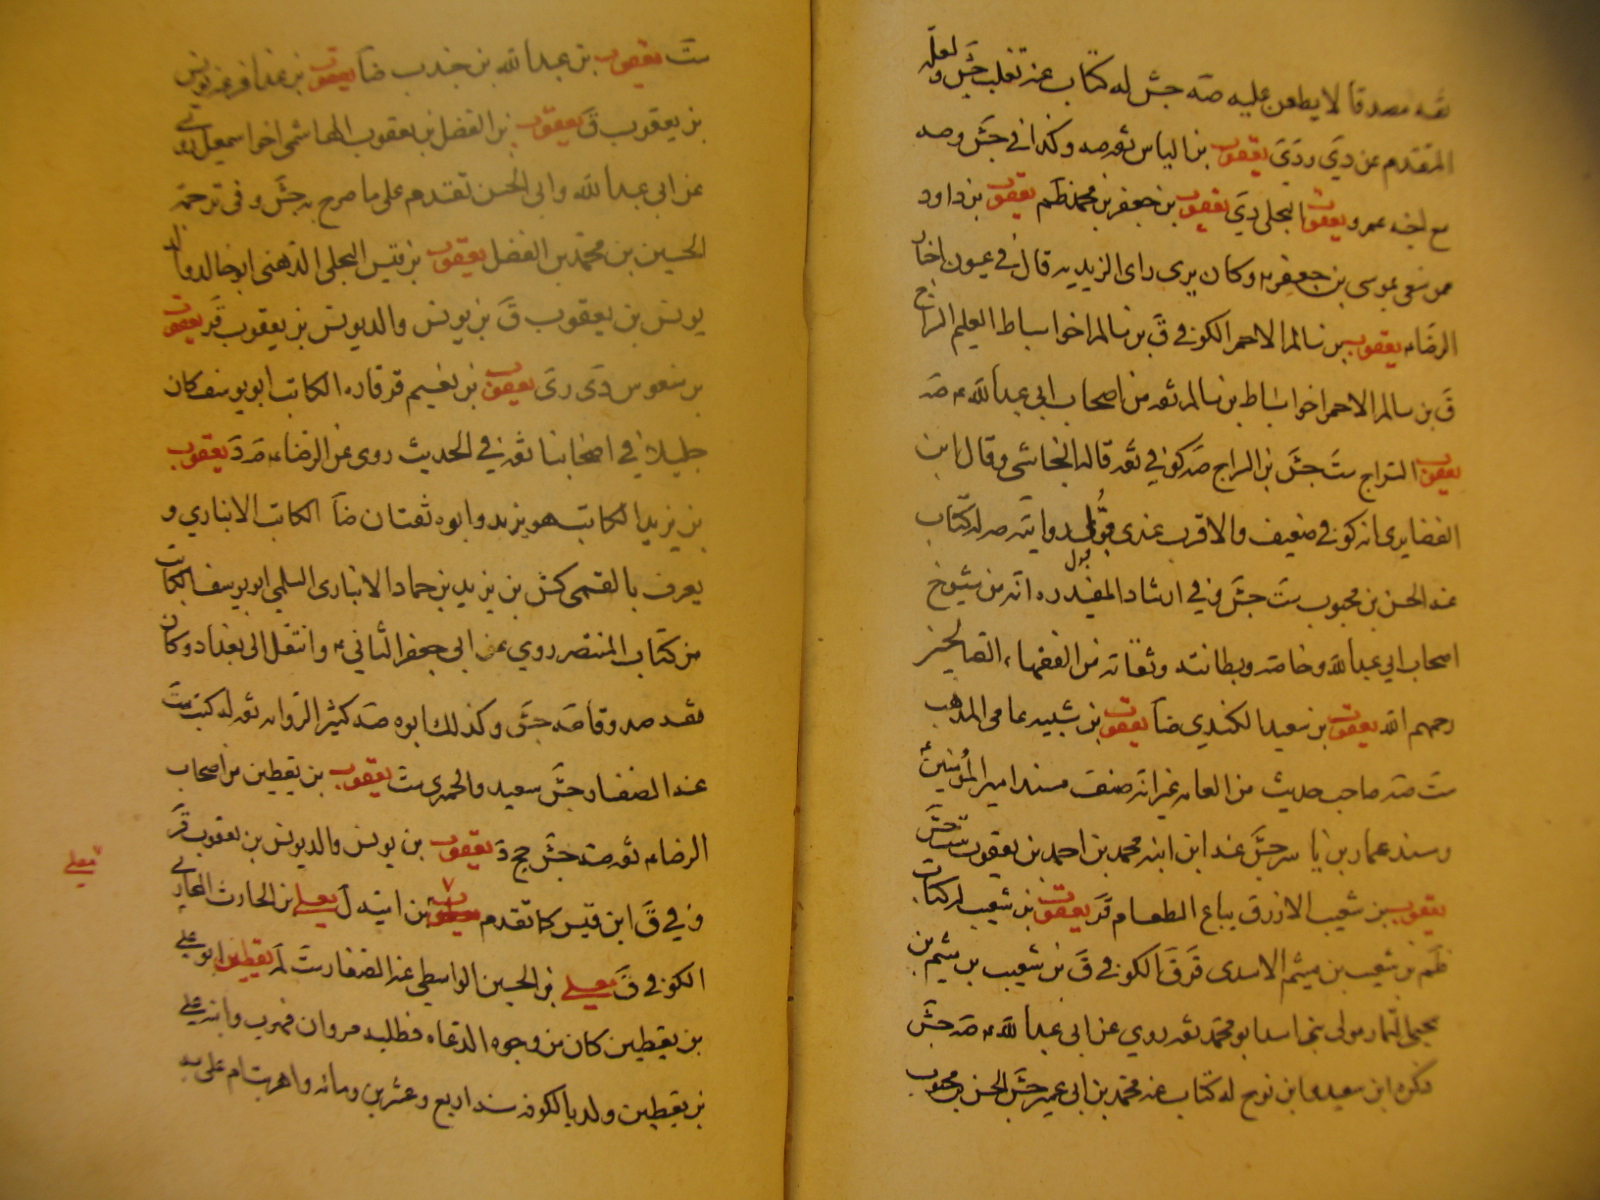 ثقة صدوقا لا يطعن عليه صه جش له كتاب عنه ثعلب جش ولعله
المتقدم عن دي ردي يعقوب بن الياس ثقه صه وكذا في جش وصه
مع اخيه عمرو يعقوب البجلي دي يعقوب بن جعفر بن محمد ظم يعقوب بن داود
ممن سعى بموسى بن جعفر ع وكان يرى راى الزيديه قال في عيون اخبار
الرضا ع يعقوب بن سالم الاحمر الكوفي ق بن سالم اخوا سباط العليم السراج
ق بن سالم الاحمر اخوا سباط بن سالم ثقه من اصحاب ابي عبد الله ع صه
يعقوب السراج ست جش بن السراج صه كوفي ثقه قاله النجاشي وقال ابن
الغضايري انه كوفي ضعيف والاقرب عندي قبول روايته صه له كتاب
عنه الحسن بن محبوب ست جش وفي ارشاد المفيد ره انه من شيوخ
اصحاب ابي عبد الله وخاصته وبطانته وثقاته من الفقهاء الصالحين
رحمهم الله يعقوب بن سعيد الكندي ضا يعقوب بن شيبه عامى المذهب
ست صه صاحب حديث من العامه غير انه صنف مسند امير المؤمنين ع
ومسند عمار بن ياسر جش عنه ابن ابنه محمد بن احمد بن يعقوب ست جش
يعقوب بن شعيب الازرق بياع الطعام قر يعقوب بن شعيب له كتاب
ظم بن شعيب بن ميثم الاسدي قر ق الكوفي ق بن شعيب بن ميثم بن
يحيى التمار مولى بني اسد ابو محمد ثقه روي عن ابي عبد الله ع صه جش
ذكره ابن سعيد وابن نوح له كتاب عنه محمد بن ابي عمير جش الحسن بن محبوب
ست يعقوب بن عبد الله بن جندب ضا يعقوب بن عذافر عنه يونس
بن يعقوب ق يعقوب بن الفضل بن يعقوب الهاشمي اخوا سمعيل روى
عن ابي عبد الله وابي الحسن تقدم على ما صرح به جش وفي ترجمة
الحسين بن محمد بن الفضل يعقوب بن قيس البجلي الدهني ابو خالد والد
يونس بن يعقوب ق بن يونس والد يونس بن يعقوب قر يعقوب
بن منقوس دي ري يعقوب بن نعيم قرقاره الكاتب ابو يوسف كان
جليلا في اصحابنا ثقه في الحديث روى عن الرضا ع صه د يعقوب
بن يزيد الكاتب هو يزيد وابوه ثقتان ضا الكاتب الانباري و
يعرف بالقمى كش بن يزيد بن حماد الانباري السلمي ابو يوسف الكاتب
من كتاب المنتصر روي عن ابي جعفر الثاني ع وانتقل الى بغداد وكان
ثقه صدوقا صه جش وكذلك ابوه صه كثير الروايه ثقه له كتب ست
عنه الصفار جش سعيد والحميري ست يعقوب بن يقطين من اصحاب
الرضا ع ثقه صه جش جج د يعقوب بن يونس والد يونس بن يعقوب قر
وفي ق ابن قيس كما تقدم بن اميه ل يعلى بن الحارث المحاربي
الكوفي ق معلى بن الحسين الواسطي عنه الصفار ست لم يقطين ابو علي
بن يقطين كان من وجوه الدعاة فطلبه مروان فهرب وابنه علي
بن يقطين ولد بالكوفه سنه اربع وعشرين ومائه واهربت ام علي به
معلى